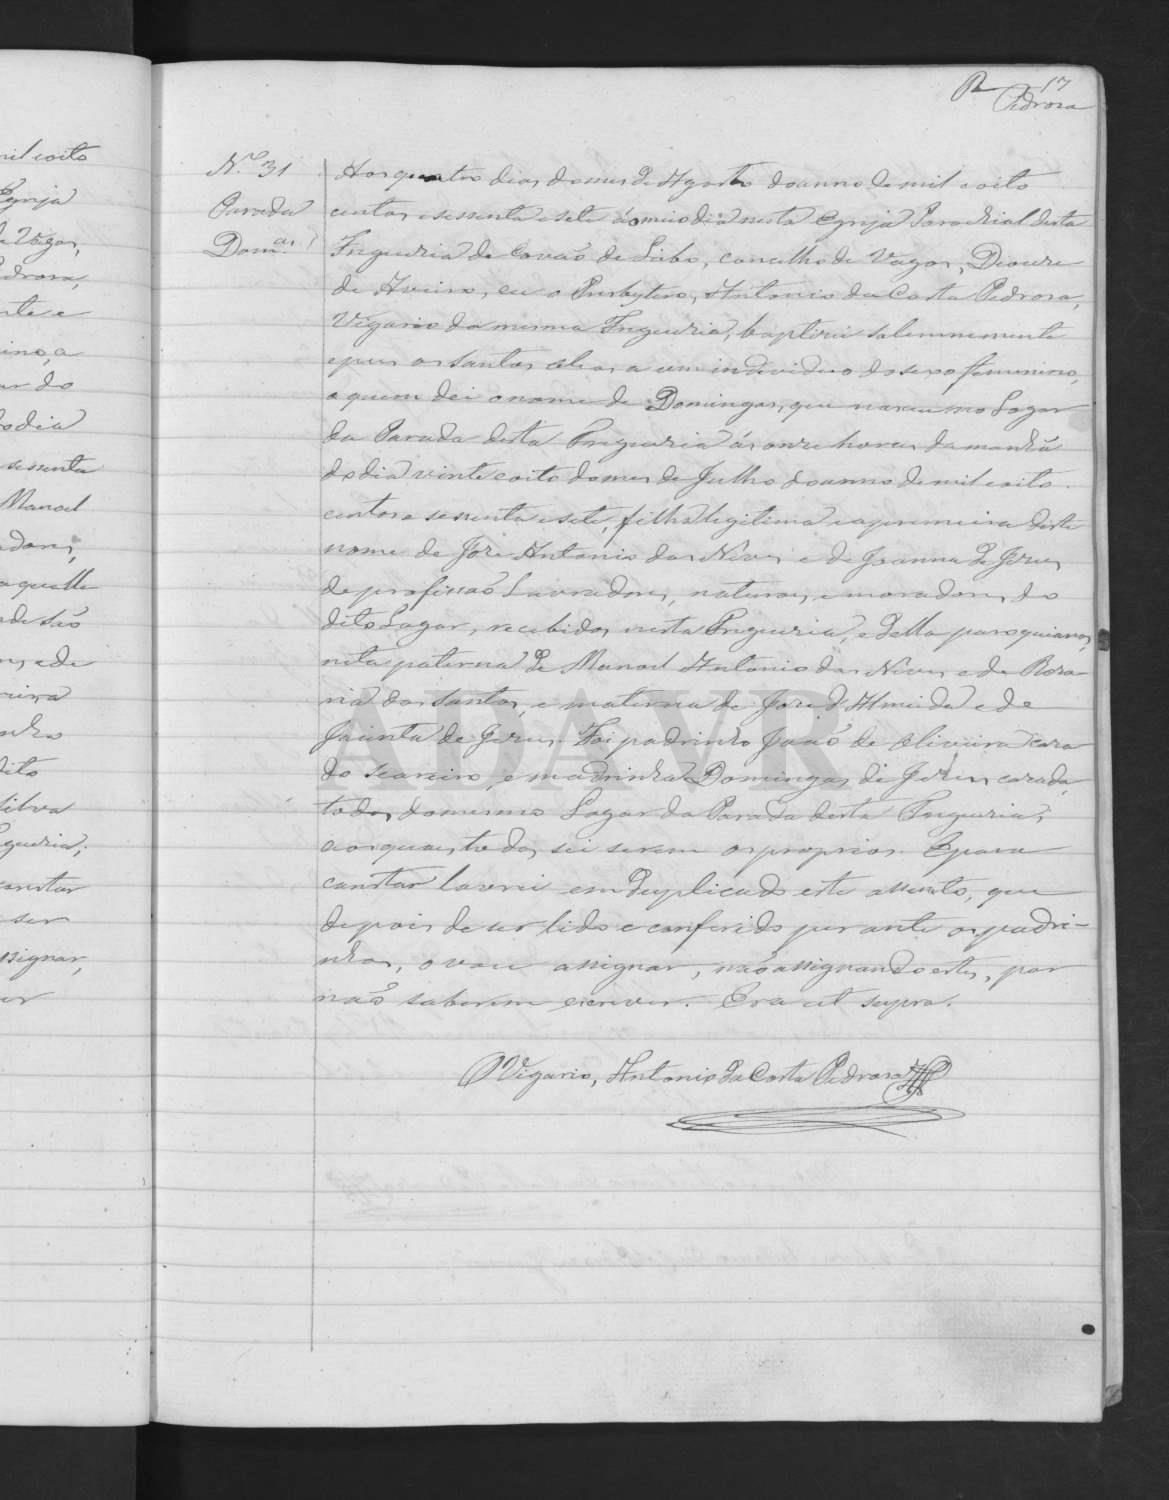 R 17
Pedrosa
N.º 31
Parada
Dom.as
Aos quatro dias do mes de Agosto do anno de mil e oito
centos e sessenta e sete ao meio dia nesta Egreja Parochial desta
Freguezia de Covão do Lobo, concelho de Vagos, Diocese
de Aveiro, eu o Presbytero, Antonio da Costa Pedrosa,
Vigario da mesma Freguezia, baptizei solemnemente
e puz os santos oleos a um individuo do sexo femenino,
a quem dei o nome de Domingas, que nasceu no Logar
da Parada desta Freguezia ás onze horas da manhã
do dia vinte e oito do mes de Julho do anno de mil e oito
centos e sessenta e sete, filha legitima e a premeira deste
nome de Joze Antonio das Neves e de Joanna de Jesus
de profissão Lavradores, naturaes e moradores do
dito Logar, recebidos nesta Freguezia, e della paroquianos,
neta paterna de Manoel Antonio das Neves e de Roza
ria dos Santos, e materna de Joze d'Almeida e de
Jacinta de Jesus. Foi padrinho João de Oliveira caza
do Seareiro, e madrinha Domingas de Jesus, cazada,
todos do mesmo Logar da Parada desta Freguezia,
aos quaes todos sei serem os proprios. E para
constar lavrei em duplicado este assento, que
depois de ser lido e conferido perante os padri-
nhos, o vou assignar, não assignando estes, por
não saberem escrever. Era ut supra.
O Vigario, Antonio da Costa Pedrosa
ADAVR
mil e oito
Egreja
de Vagos,
Pedrosa,
nte e
ino, a
ar do
do dia
sessenta
Manoel
adores,
aquelle
de São
s, e de
eira
nho
dito
Silva
guezia;
constar
ser
assignar,
er